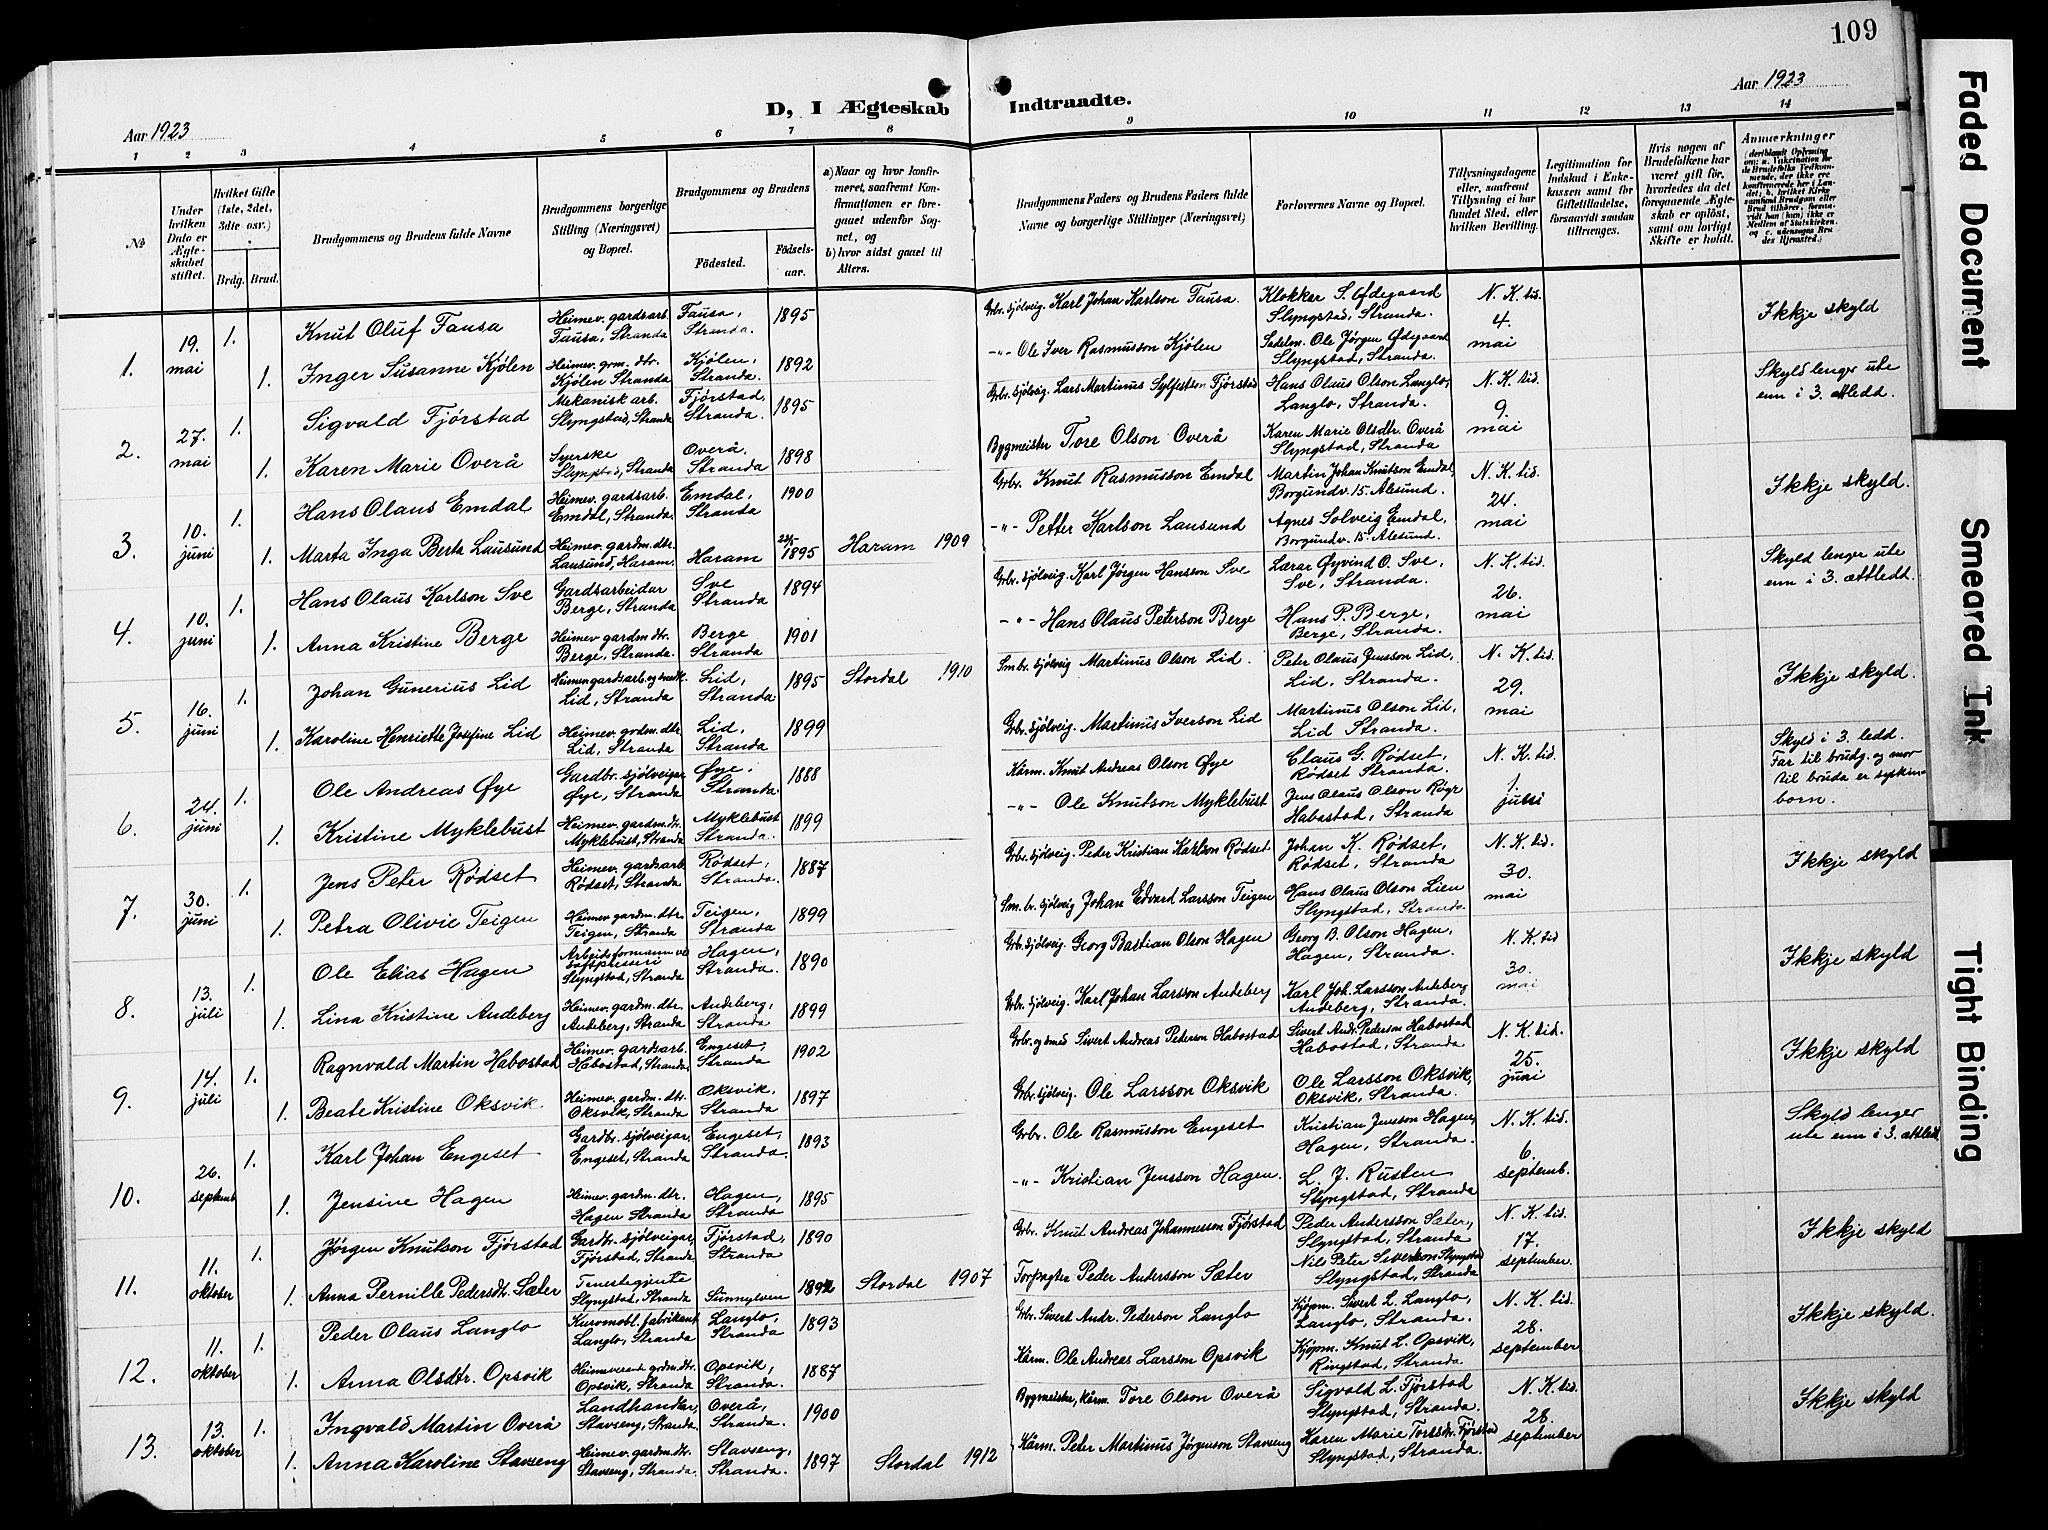 109
Aar 1923
D, I Ægteskab Indtraadte.
Aar 1923
1 2 3 4 5 6 7 8 9 10 11 12 13 14
№
Under hvilken Dato er Ægteskabet stiftet.
Hvilket Gifte (1ste, 2det, 3dte osv.)
Brdg. Brud.
Brudgommens og Brudens fulde Navne
Brudgommens borgerlige Stilling (Næringsvei) og Bopæl.
Brudgommens og Brudens
Fødested.
Fødselsaar.
a) Naar og hvor konfirmeret, saafremt Konfirmationen er foregaaet udenfor Sognet, og
b) hvor sidst gaaet til Alters.
Brudgommens Faders og Brudens Faders fulde Navne og borgerlige Stillinger (Næringsvei)
Forlovernes Navne og Bopæl.
Tillysningsdagene eller, saafremt Tillysning ei har fundet Sted, efter hvilken Bevilling.
Legitimation for Indskud i Enkekassen samt for Giftetilladelse, forsaavidt saadan tiltrænges.
Hvis nogen af Brudefolkene har været gift før, hvorledes da det foregaaende Ægteskab er opløst, samt om lovligt Skifte er holdt.
Anmerkninger
1. 19. mai 1. Knut Oluf Fausa Heimev. gardsarb. Fausa, Stranda Fausa, Stranda. 1895 Grbr. sjølveig. Karl Johan Karlson Fausa. Klokkar S. Ødegaard Slyngstad, Stranda. N. K. tid. 4. mai Ikkje skyld
1. Inger Susanne Kjølen Heimev. grm. dtr. Kjølen Stranda Kjølen, Stranda. 1892 -"- Ole Iver Rasmusson Kjølen Sadelm. Ole Jørgen Ødegaard Slyngstad, Stranda.
2. 27. mai 1. Sigvald Fjørstad Mekanisk arb. Slyngstad, Stranda Fjørstad, Stranda. 1895 Grbr. sjølveig. Lars Martinus Sylfestson Fjørstad Hans Olaus Olson Langlo, Langlo, Stranda. N. K. tid. 9. mai Skyld lenger ute enn i 3. ættledd.
1. Karen Marie Overå Syerske Slyngstad, Stranda Overå, Stranda 1898 Bygmeister Tore Olson Overå Karen Marie Olsdtr. Overå Slyngstad, Stranda
3. 10. juni 1. Hans Olaus Emdal Heimev. gardsarb. Emdal, Stranda. Emdal, Stranda 1900 Grbr. Knut Rasmusson Emdal Martin Johan Knutson Emdal, Borgundv. 15. Ålesund. N. K. tid. 24. mai Ikkje skyld.
1. Marta Inga Berta Lausund Heimev. gardm. dtr. Lausund, Haram. Haram 1895 Haram 1909 -"- Petter Karlson Lausund Agnes Solveig Emdal, Borgundv. 15. Ålesund.
4. 10. juni 1. Hans Olaus Karlson Sve Gardsarbeidar Berge, Stranda Sve Stranda 1894 Grbr. sjølveig. Karl Jørgen Hansson Sve Lærar Øyvind O. Sve, Sve, Stranda. N. K. tid. 26. mai Skyld lenger ute enn i 3. ættledd.
1. Anna Kristine Berge Heimev. gardm. dtr. Berge, Stranda. Berge Stranda 1901 -"- Hans Olaus Peterson Berge Hans P. Berge, Berge, Stranda.
5. 16. juni 1. Johan Gunerius Lid Lid, Stranda Lid, Stranda. 1895 Stordal 1910 Smbr. sjølveig Martinus Olson Lid. Peter Olaus Jensson Lid, Lid, Stranda. N. K. tid. 29. mai Ikkje skyld.
1. Karoline Henriette Josefine Lid Heimev. grdm. dtr. Lid, Stranda Lid, Stranda 1899 Grbr. sjølveig. Martinus Iverson Lid Martinus Olson Lid, Lid Stranda.
6. 24. juni 1. Ole Andreas Øye Gardbr. sjølveigar Øye, Stranda Øye, Stranda 1888 Kårm. Knut Andreas Olson Øye Claus G. Rødset, Rødset Stranda. N. K. tid. 1. Skyld i 3. ledd. Far til brudg. og mor til bruda er syskinborn.
1. Kristine Myklebust Heimev. gardm. dtr. Myklebust, Stranda Myklebust Stranda. 1899 -"- Ole Knutson Myklebust Jens Olaus Olson Habostad, Stranda
7. 30. juni 1. Jens Peter Rødset Heimev. gardsarb. Rødset, Stranda Rødset, Stranda. 1887 Grbr. sjølveig. Peder Kristian Karlson Rødset Johan K. Rødset, Rødset, Stranda N. K. tid. 30. mai Ikkje skyld
1. Petra Olivie Teigen Heimev. gardm. dtr. Teigen, Stranda Teigen, Stranda 1899 Sm. br. sjølveig Johan Edvard Larsson Teigen Hans Olaus Olson Lien Slyngstad, Stranda
8. 13. juli 1. Ole Elias Hagen Arbeidsformann Slyngstad, Stranda Hagen, Stranda. 1890 Grbr. sjølveig. Georg Bastian Olson Hagen Georg B. Olson Hagen, Hagen, Stranda. N. K. tid 30. mai Ikkje skyld
1. Lina Kristine Andeberg Heimev. gardm. dtr. Andeberg, Stranda Andeberg, Stranda 1899 Grbr. sjølveig. Karl Johan Larsson Andeberg Karl Joh. Larsson Andeberg Andeberg, Stranda.
9. 14. juli 1. Ragnvald Martin Habostad Heimev. gardsarb. Habostad, Stranda, Engeset, Stranda 1902 Grbr. og smed Sivert Andreas Peterson Habostad Sivert Andr. Pederson Habostad Habostad, Stranda N. K. tid. 25. juni Ikkje skyld
1. Beate Kristine Oksvik. Heimev. gardm. dtr. Oksvik, Stranda Oksvik, Stranda 1897 Grbr. sjølveig. Ole Larsson Oksvik Ole Larsson Oksvik, Oksvik, Stranda.
10. 26. septemb. 1. Karl Johan Engeset Gardbr. sjølveigar, Engeset, Stranda Engeset, Stranda. 1893 Grbr. Ole Rasmusson Engeset Kristian Jensson Hagen, Hagen, Stranda. N. K. tid. 6. septemb. Skyld lenger ute enn i 3. ættledd
1. Jensine Hagen Heimev. gardm. dtr. Hagen Stranda Hagen, Stranda 1895 -"- Kristian Jensson Hagen. L. J. Rusten Slyngstad, Stranda
11. 11. oktober 1. Jørgen Knutson Fjørstad Gardbr. sjølveigar, Fjørstad, Stranda Fjørstad, Stranda 1890 Grbr. Knut Andreas Johannesson Fjørstad Peder Andersson Sæter, Slyngstad, Stranda N. K. tid. 17. september. Ikkje skyld
1. Anna Pernille Pedersdtr. Sæter Tenestegjente Slyngstad, Stranda Sunnylven 1892 Stordal 1907 Forpagter Peder Andersson Sæter Nils Peter Sivertson Slyngstad Slyngstad, Stranda
12. 11. oktober 1. Peder Olaus Langlo Kurvmøbl. fabrikant Langlo, Stranda Langlo, Stranda 1893 Grbr. Sivert Andr. Pederson Langlo Kjøpm. Sivert L. Langlo, Langlo, Stranda. N. K. tid. 28. september Ikkje skyld.
1. Anna Olsdtr. Opsvik Heimeverant grdm. dtr. Opsvik, Stranda Opsvik, Stranda. 1887 Kårm. Ole Andreas Larsson Opsvik Kjøpm. Knut L. Opsvik, Ringstad, Stranda
13. 13. oktober 1. Ingvald Martin Overå Landhandlar, Stavseng, Stranda. Overå, Stranda. 1900 Bygmeister, kårm. Tore Olson Overå Sigvald L. Fjørstad Slyngstad, Stranda. N. K. tid. 28. september Ikkje skyld
1. Anna Karoline Stavseng Heimev. gardm. dtr. Stavseng, Stranda. Stavseng, Stranda. 1897 Stordal 1912 Kårm. Peter Martinus Jørgenson Stavseng Karen Marie Torsdtr. Fjørstad Slyngstad, Stranda.
Faded Document
Smeared Ink
Tight Binding